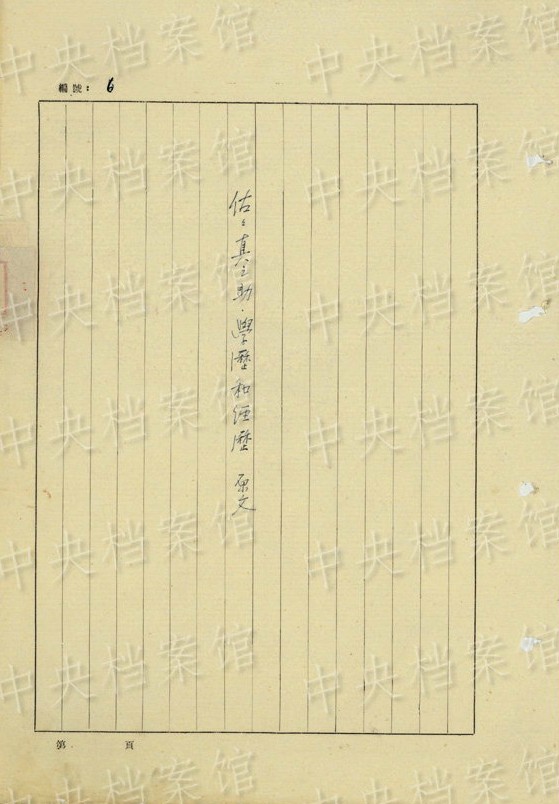 中央档案馆 中央档案馆
編號: 6
中央档案馆 中央档案馆
佐々真之助·學歷和經歷 原文
中央档案馆 中央档案馆
中央档案馆 中央档案馆
中央档案馆 中央档案馆
中央档案馆 中央档案馆
第 頁
中央档案馆 中央档案馆